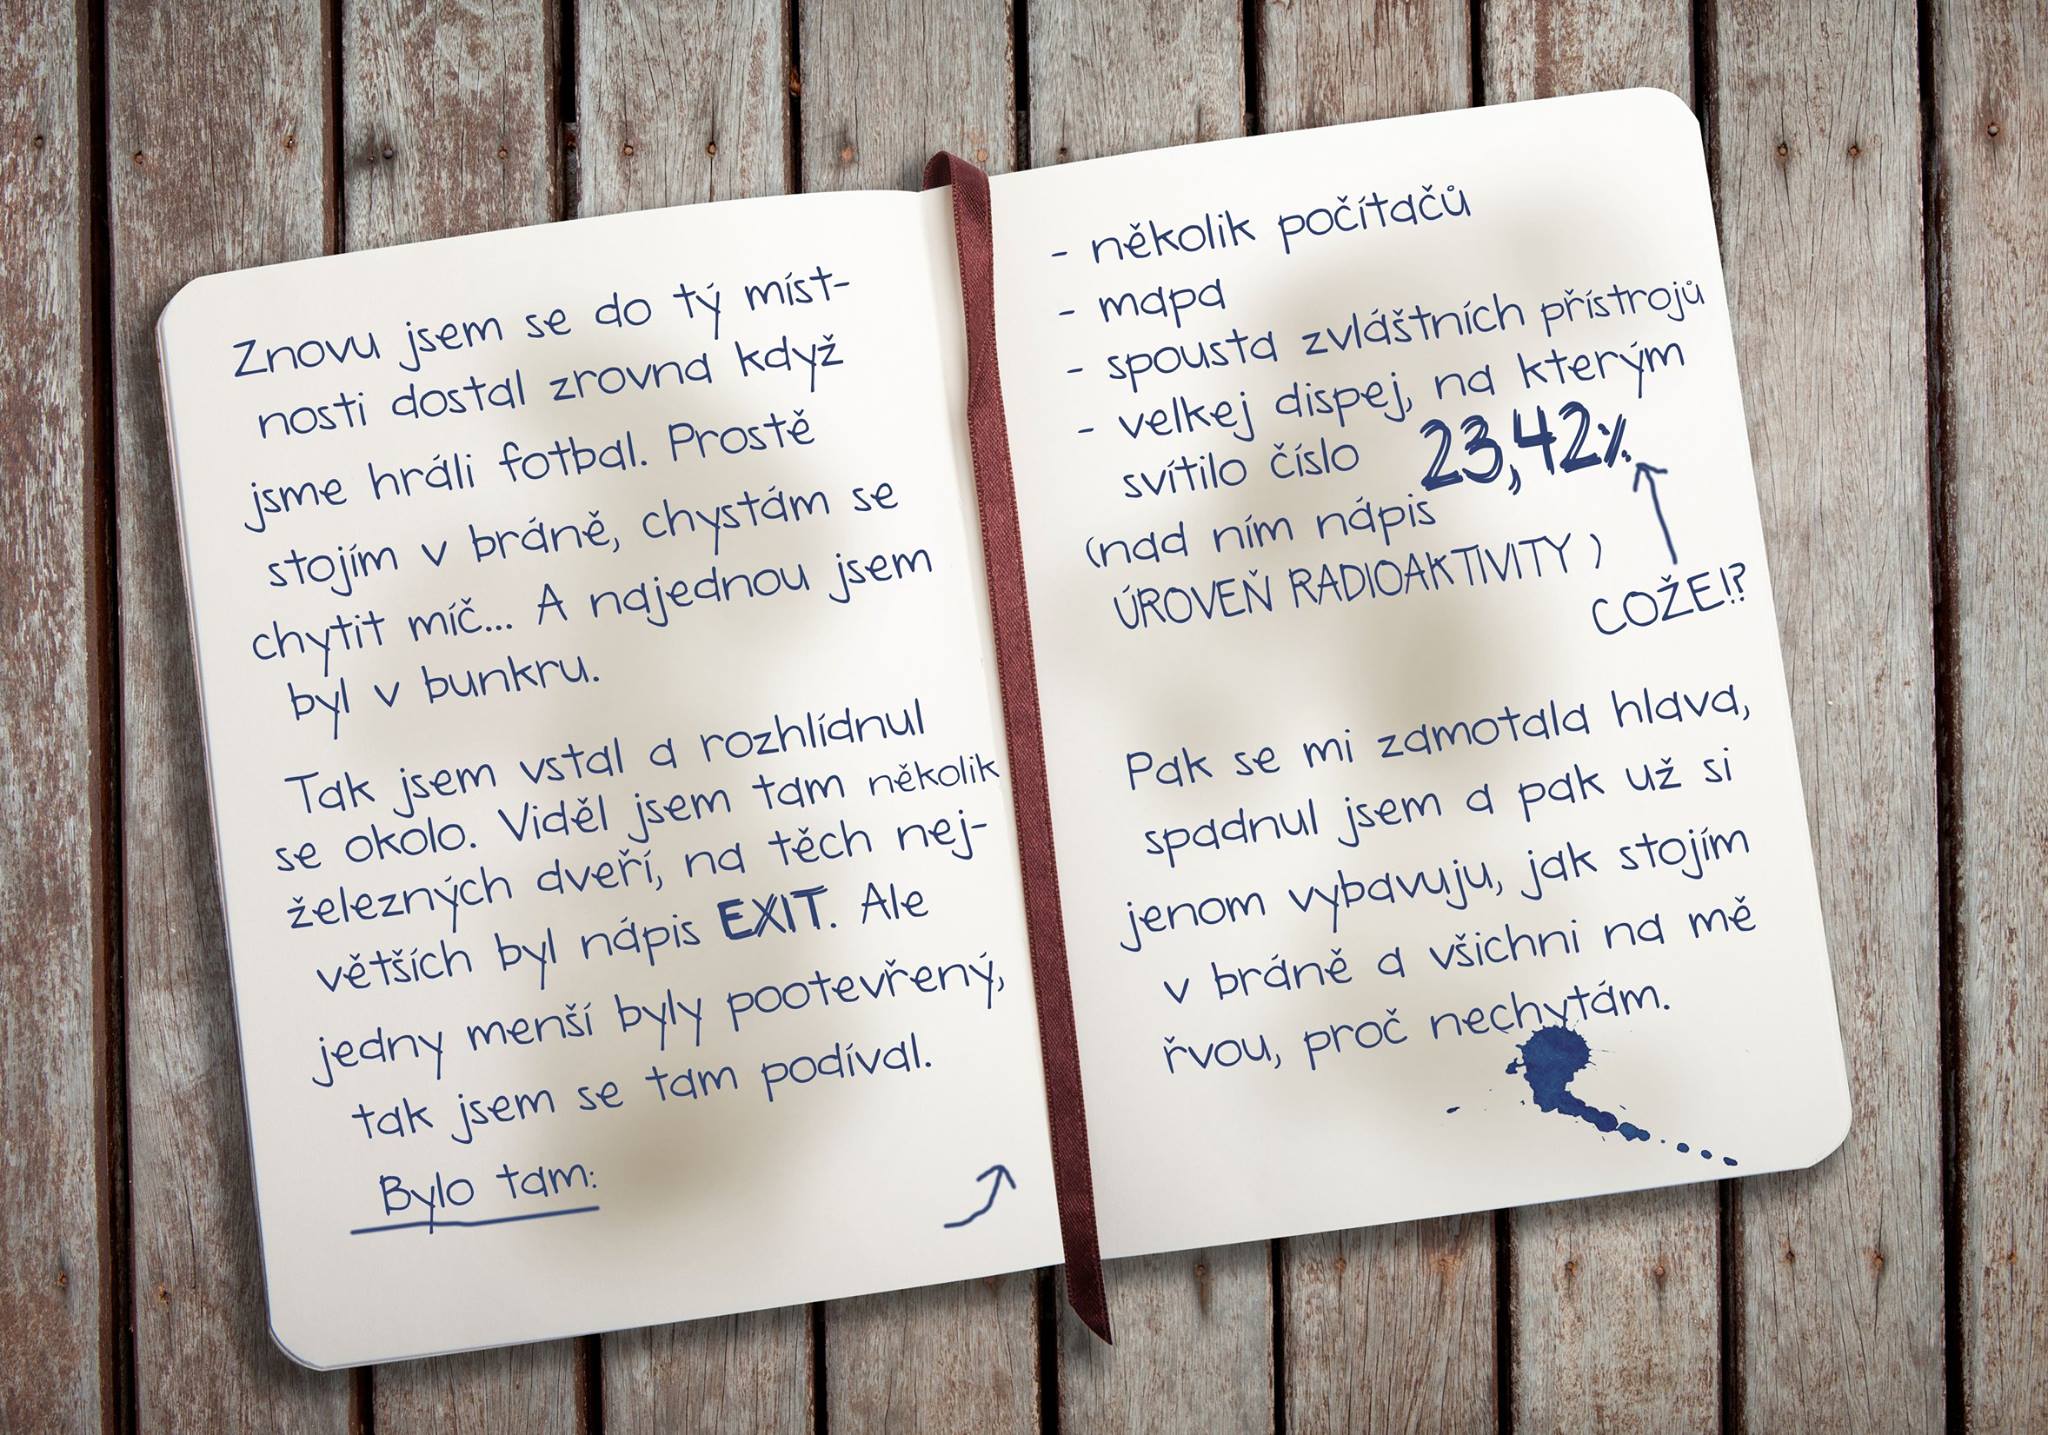 Znovu jsem se do tý míst-
nosti dostal zrovna když
jsme hráli fotbal. Prostě
stojím v bráně, chystám se
chytit míč... A najednou jsem
byl v bunkru.
Tak jsem vstal a rozhlídnul
se okolo. Viděl jsem tam několik
železných dveří, na těch nej-
větších byl nápis EXIT. Ale
jedny menší byly pootevřený,
tak jsem se tam podíval.
Bylo tam:
- několik počítačů
- mapa
- spousta zvláštních přístrojů
- velkej dispej, na kterým
svítilo číslo 23,42%
(nad ním nápis
ÚROVEŇ RADIOAKTIVITY)
COŽE!?
Pak se mi zamotala hlava,
spadnul jsem a pak už si
jenom vybavuju, jak stojím
v bráně a všichni na mě
řvou, proč nechytám.